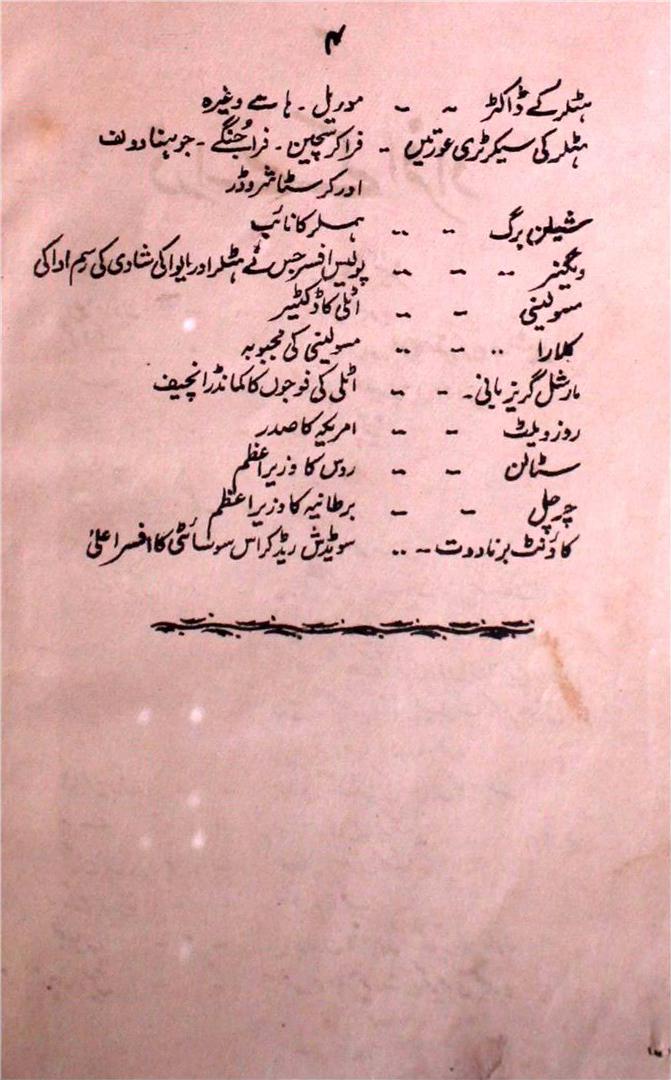 ۴
ہٹلر کے ڈاکٹر - - موریل۔ ہاسے وغیرہ
ہٹلر کی سیکرٹری عورتیں - فراکرسچین۔ فراجُنگے۔ جوہینا وولف
اور کرسٹا شروڈر
شیلن برگ - .. ہملر کا نائب
ویگنیر .. - پولیس افسر جس نے ہٹلر اور ایوا کی شادی کی رسم ادا کی
مسولینی - - اٹلی کا ڈکٹیٹر
کلارا .. - .. مسولینی کی محبوبہ
مارشل گریزیانی۔ - - اٹلی کی فوجوں کا کمانڈر انچیف
روزویلٹ - - امریکہ کا صدر
سٹالن - - روس کا وزیر اعظم
چرچل - - برطانیہ کا وزیر اعظم
کاؤنٹ برنادوت - .. سویڈش ریڈ کراس سوسائٹی کا افسر اعلیٰ